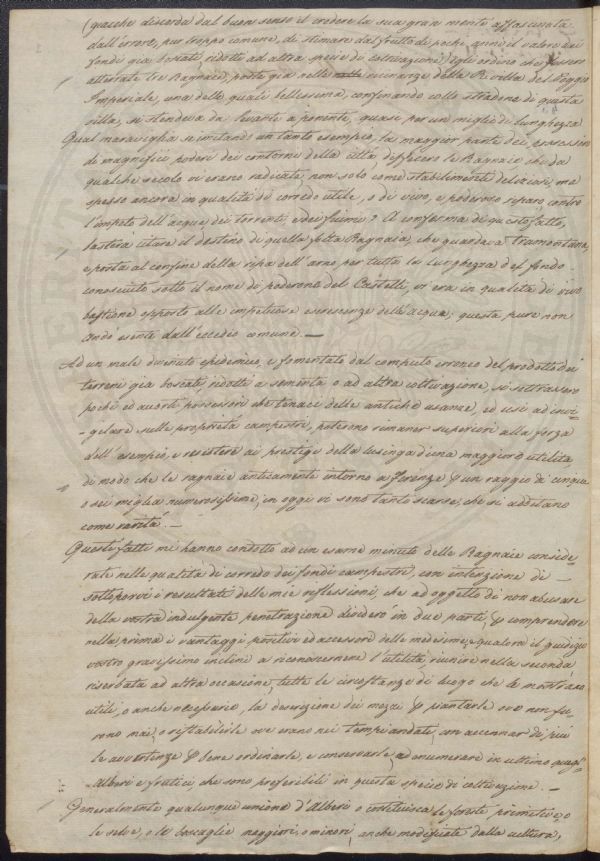 (giacchè discorda dal buon senso il credere la sua gran mente affascinata
dall'errore, pur troppo comune, di stimare dal frutto di poche anni il valore dei
fondi già boscati ridotti ad altra specie di coltivazione) egli ordinò che fossero
atterrate tre Ragnaie, poste già nelle vicinanze della R. villa del Poggio
Imperiale, una delle quali bellissima, confinando collo stradone di questa
villa, si stendeva da levante a ponente, quasi per un miglio di lunghezza
Qual maraviglia se imitando un tanto esempio, la maggior parte dei possessori
di magnifici poderi dei contorni della città disfecero le Ragnaie che da
qualche secolo vi erano radicate, non solo come stabilimenti deliziosi, ma
spesso ancora in qualità di corredo utile, o di vivo, e poderoso riparo contro
l'impeto dell'acque dei torrenti, e dei fiumi? A conferma di questo fatto,
basterà citare il destino di quella folta Ragnaia, che guardava Tramontana,
e posta al confine della ripa dell'arno per tutta la lunghezza del fondo
conosciuto sotto il nome di poderone del Castelli, vi era in qualità di vivo
bastione opposto alle impetuose escrescenze dell'acqua; questa pure non
andò esente dall'eccidio comune. —
Ad un male divenuto epidemico, e fomentato dal computo erroneo del prodotto dei
terreni già boscati ridotti a sementa o ad altra coltivazione, si sottrassero
pochi ed accorti possessori che tenaci delle antiche usanze, ed usi ad invi=
-gilare sulle proprietà campestri, poterono rimaner superiori alla forza
dell'esempio, e resistere ai prestigi della lusinga d'una maggiore utilità,
di modo che le ragnaie anticamente intorno a Firenze p un raggio di cinque
o sei miglia numerosissime, in oggi vi sono tanto scarse, che si additano
come rarità. —
Questi fatti mi hanno condotto ad un esame minuto delle Ragnaie conside=
rate nelle qualità di corredo dei fondi campestri, con intenzione di —
sottoporvi i resultati delle mie riflessioni, che ad oggetto di non abusare
della vostra indulgente penetrazione dividerò in due parti, p comprendere
nella prima i vantaggi positivi ed accessori delle medesime, e qualora il giudizio
vostro gravissimo inclini a riconoscerne l'utilità, riunire nella seconda
riserbata ad altra occasione, tutte le circostanze di luogo che le mostrano
utili, o anche necessarie, la descrizione dei mezzi p piantarle ove non fu=
rono mai, o ristabilirle ove erano nei tempi andati, con accennar di più
le avvertenze p bene ordinarle, e conservarle, ad enumerare in ultimo quegl'
Alberi e frutici, che sono preferibili in questa specie di coltivazione. —
Generalmente qualunque unione d'Alberi o costituisca le foreste primitive, o
le selve, o le boscaglie maggiori, o minori, anche modificate dalla cultura,